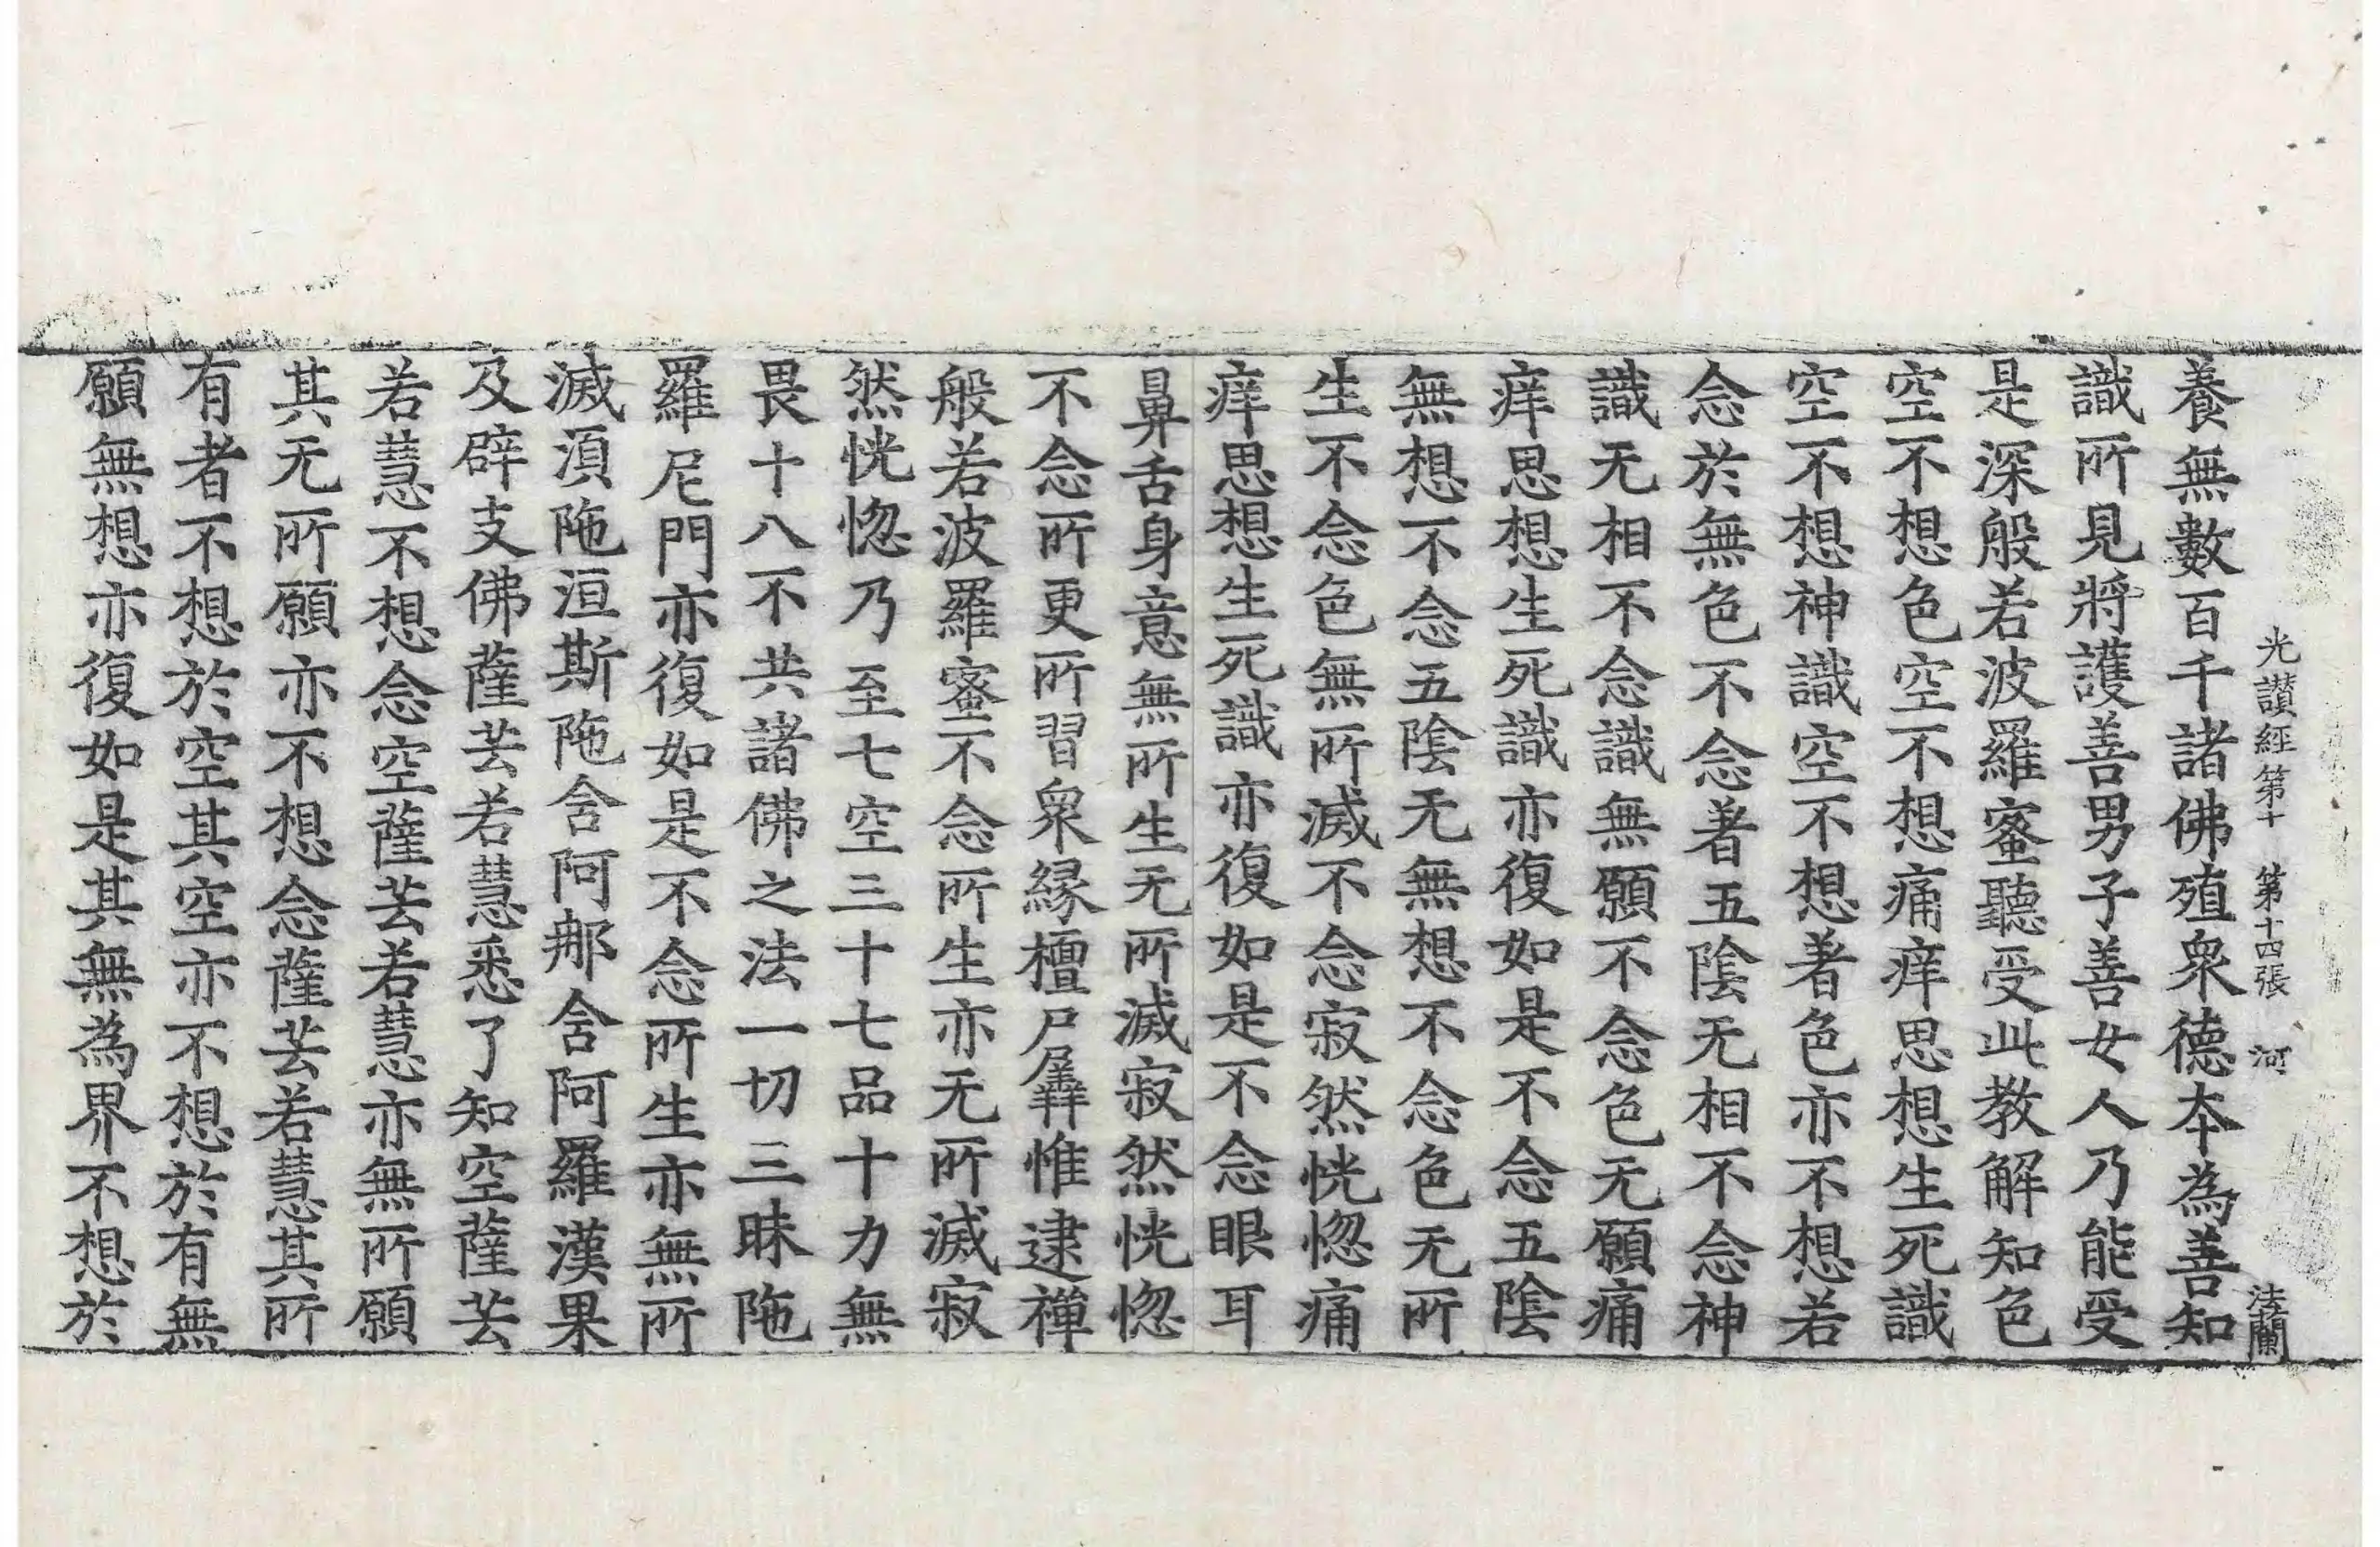 光讃經第十　第十四張　河　法蘭
養無數百千諸佛殖衆德本為善知
識所見將護善男子善女人乃能受
是深般若波羅蜜聽受此教解知色
空不想色空不想痛痒思想生死識
空不想神識空不想著色亦不想若
念於無色不念著五陰无相不念神
識无相不念識無願不念色无願痛
痒思想生死識亦復如是不念五陰
無想不念五陰无無想不念色无所
生不念色無所滅不念寂然恍惚痛
痒思想生死識亦復如是不念眼耳
鼻舌身意無所生无所滅寂然恍惚
不念所更所習衆縁檀尸羼惟逮禪
般若波羅蜜不念所生亦无所滅寂
然恍惚乃至七空三十七品十力無
畏十八不共諸佛之法一切三昧陁
羅尼門亦復如是不念所生亦無所
滅湏陁洹斯陁含阿那含阿羅漢果
及辟支佛薩芸若慧悉了知空薩芸
若慧不想念空薩芸若慧亦無所願
其无所願亦不想念薩芸若慧其所
有者不想於空其空亦不想於有無
願無想亦復如是其無為界不想於